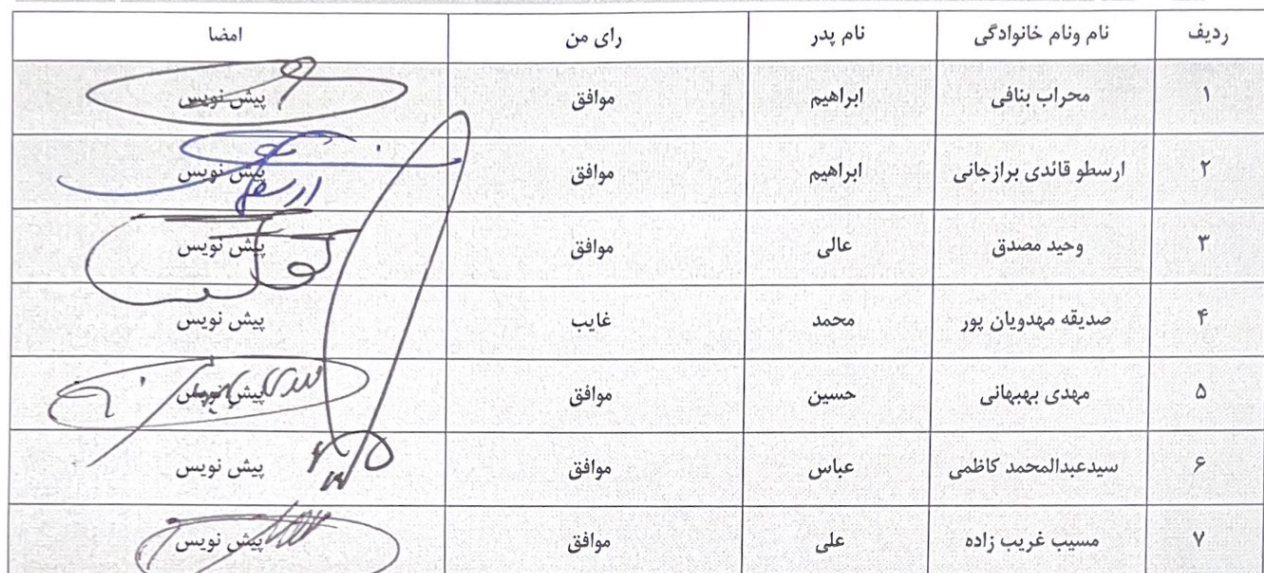 ردیف نام ونام خانوادگی نام پدر رای من امضا
۱ محراب بنافی ابراهیم موافق پیش نویس
۲ ارسطو قائدی برازجانی ابراهیم موافق پیش نویس
ارسطو
۳ وحید مصدق عالی موافق پیش نویس
۴ صدیقه مهدویان پور محمد غایب پیش نویس
۵ مهدی بهبهانی حسین موافق پیش نویس
۶ سیدعبدالمحمد کاظمی عباس موافق پیش نویس
۷ مسیب غریب زاده علی موافق پیش نویس